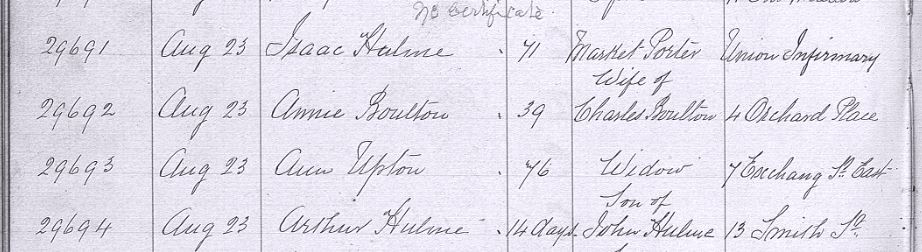 No Certificate
29691 Aug 23 Isaac Hulme 71 Market Porter Union Infirmary
Wife of
29692 Aug 23 Annie Boulton 39 Charles Boulton 4 Orchard Place
29693 Aug 23 Ann Upton 76 Widow 7 Exchang St. East
Son of
29694 Aug 23 Arthur Hulme 14 days John Hulme 13 Smith St.